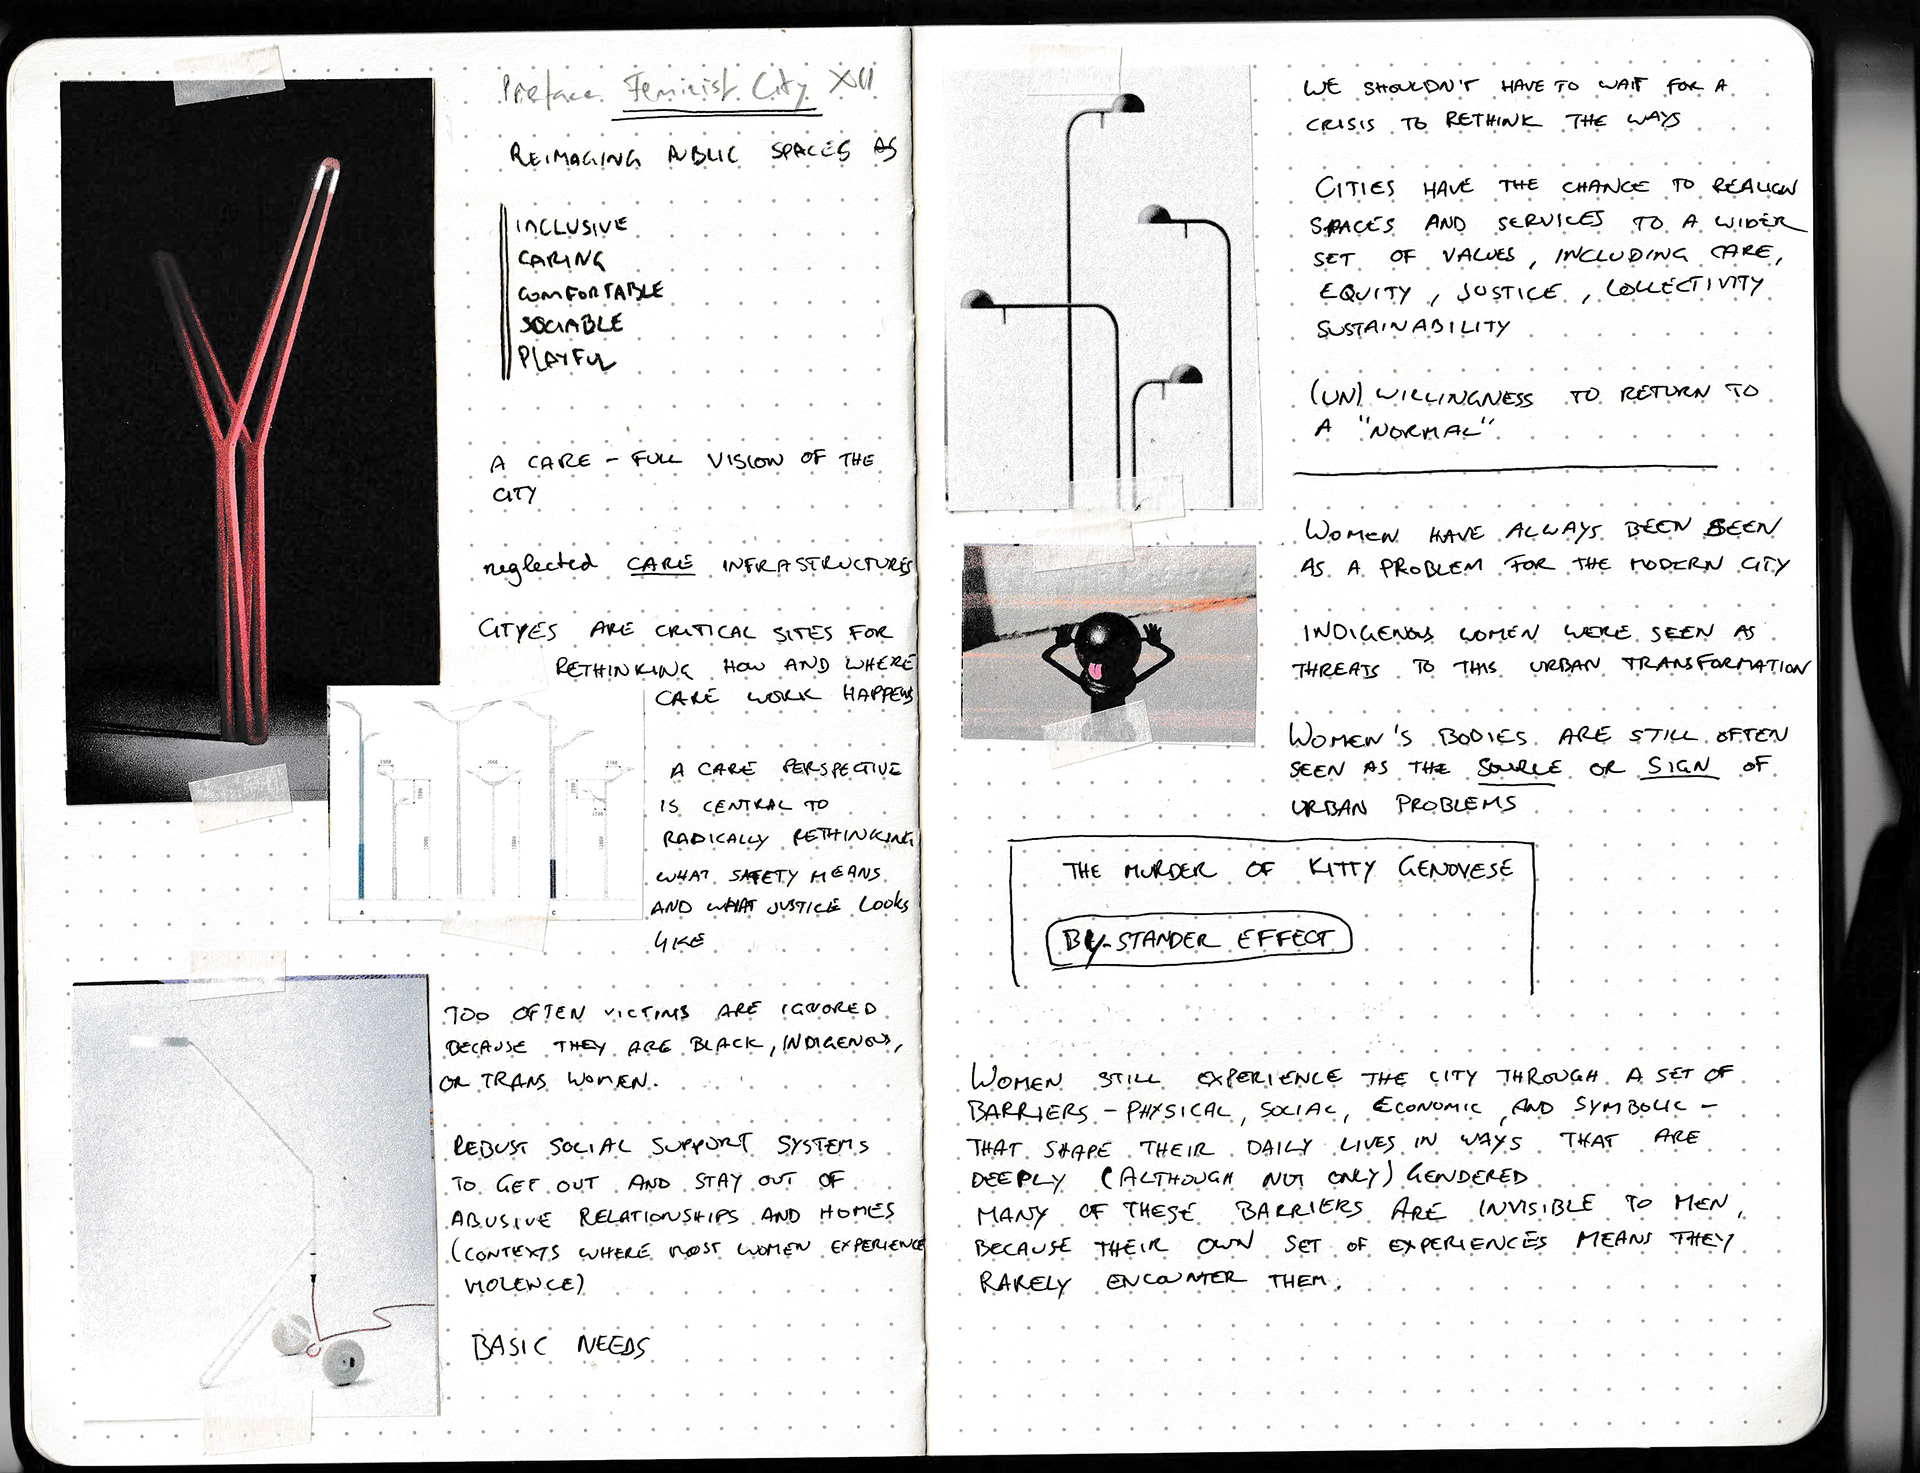 Preface Feminist City XII
REIMAGING PUBLIC SPACES AS
INCLUSIVE
CARING
COMFORTABLE
SOCIABLE
PLAYFUL
A CARE - FULL VISION OF THE
CITY
neglected CARE INFRASTRUCTURES
CITYES ARE CRITICAL SITES FOR
RETHINKING HOW AND WHERE
CARE WORK HAPPENS
A CARE PERSPECTIVE
IS CENTRAL TO
RADICALLY RETHINKING
WHAT SAFETY MEANS
AND WHAT JUSTICE LOOKS
LIKE
A B C
TOO OFTEN VICTIMS ARE IGNORED
BECAUSE THEY ARE BLACK, INDIGENOUS,
OR TRANS WOMEN.
ROBUST SOCIAL SUPPORT SYSTEMS
TO GET OUT AND STAY OUT OF
ABUSIVE RELATIONSHIPS AND HOMES
(CONTEXTS WHERE MOST WOMEN EXPERIENCE
VIOLENCE)
BASIC NEEDS
WE SHOULDN'T HAVE TO WAIT FOR A
CRISIS TO RETHINK THE WAYS
CITIES HAVE THE CHANCE TO REALIGN
SPACES AND SERVICES TO A WIDER
SET OF VALUES, INCLUDING CARE,
EQUITY, JUSTICE, COLLECTIVITY
SUSTAINABILITY
(UN)WILLINGNESS TO RETURN TO
A "NORMAL"
WOMEN HAVE ALWAYS BEEN SEEN
AS A PROBLEM FOR THE MODERN CITY
INDIGENOUS WOMEN WERE SEEN AS
THREATS TO THIS URBAN TRANSFORMATION
WOMEN'S BODIES ARE STILL OFTEN
SEEN AS THE SOURCE OR SIGN OF
URBAN PROBLEMS
THE MURDER OF KITTY GENOVESE
BY-STANDER EFFECT
WOMEN STILL EXPERIENCE THE CITY THROUGH A SET OF
BARRIERS - PHYSICAL, SOCIAL, ECONOMIC, AND SYMBOLIC -
THAT SHAPE THEIR DAILY LIVES IN WAYS THAT ARE
DEEPLY (ALTHOUGH NOT ONLY) GENDERED
MANY OF THESE BARRIERS ARE INVISIBLE TO MEN,
BECAUSE THEIR OWN SET OF EXPERIENCES MEANS THEY
RARELY ENCOUNTER THEM.